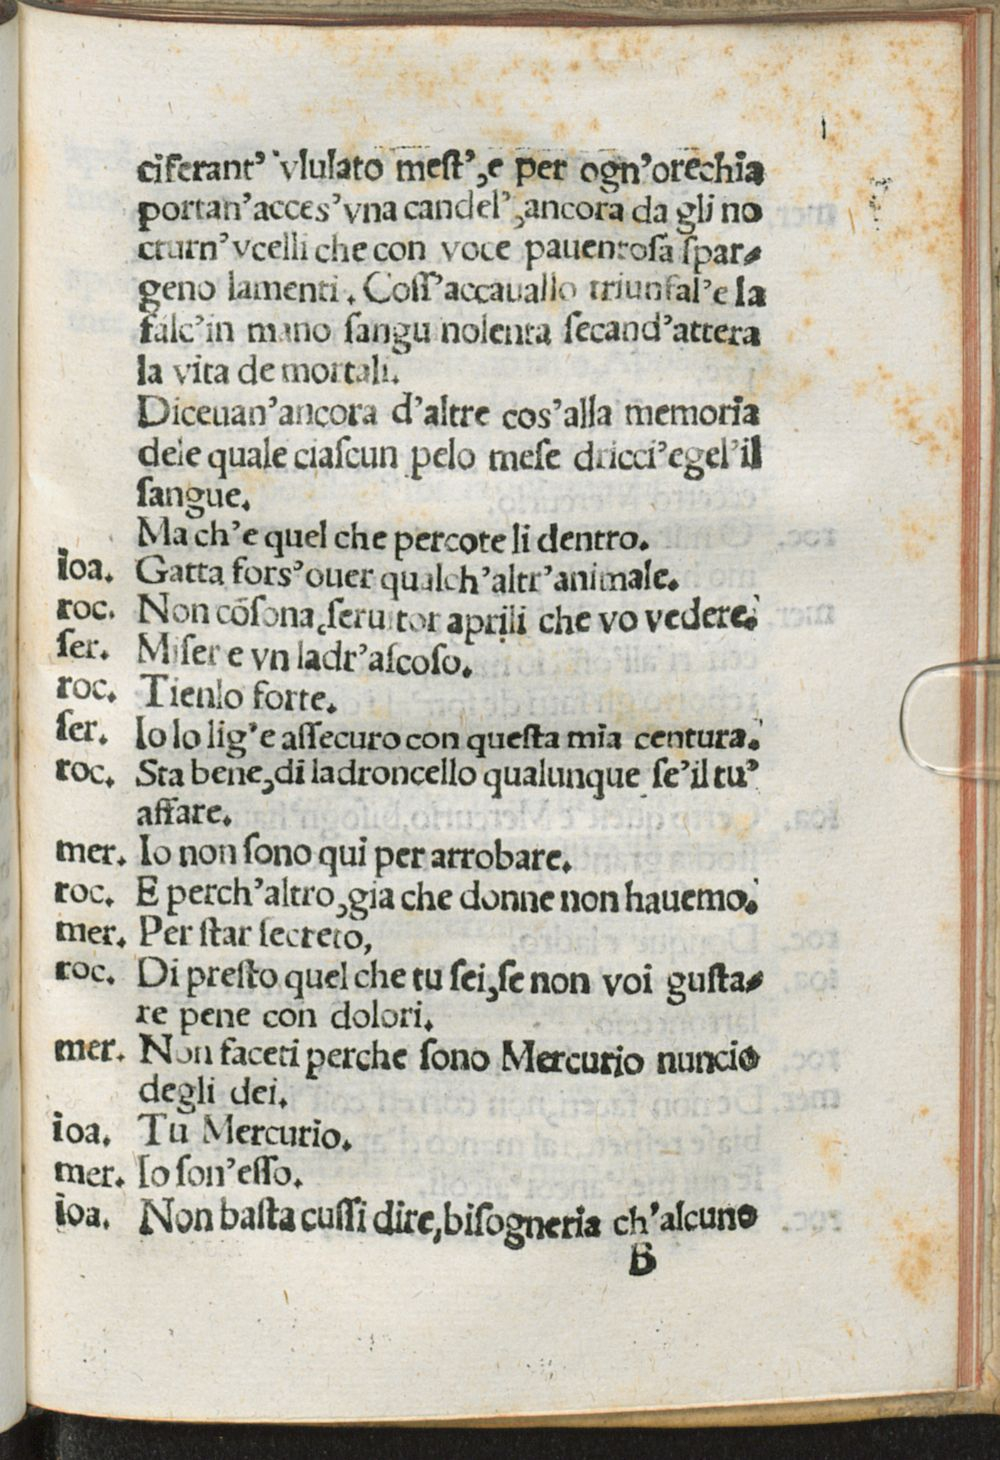 ciferant’ vlulato mest’, e per ogn’orechia
portan’acces’vna candel’, ancora da gli no
cturn’vcelli che con voce pauentosa spar-
geno lamenti. Coss’accauallo triunfal’e la
falc’in mano sanguinolenta secand’attera
la vita de mortali.
Diceuan’ancora d’altre cos’alla memoria
dele quale ciascun pelo mese dricci’egel’il
sangue.
Ma ch’e quel che percote li dentro.
ioa. Gatta fors’ouer qualch’altr’animale.
roc. Non cōsona, seruitor aprili che vo vedere.
ser. Miser e vn ladr’ascoso.
roc. Tienlo forte.
ser. Io lo lig’e assecuro con questa mia centura.
roc. Sta bene, di ladroncello qualunque se’il tu’
affare.
mer. Io non sono qui per arrobare.
roc. E perch’altro, gia che donne non hauemo.
mer. Per star secreto,
roc. Di presto quel che tu sei, se non voi gusta-
re pene con dolori.
mer. Non faceti perche sono Mercurio nuncio
degli dei.
ioa. Tu Mercurio.
mer. Io son’esso.
ioa. Non basta cussi dire, bisogneria ch’alcuno
B